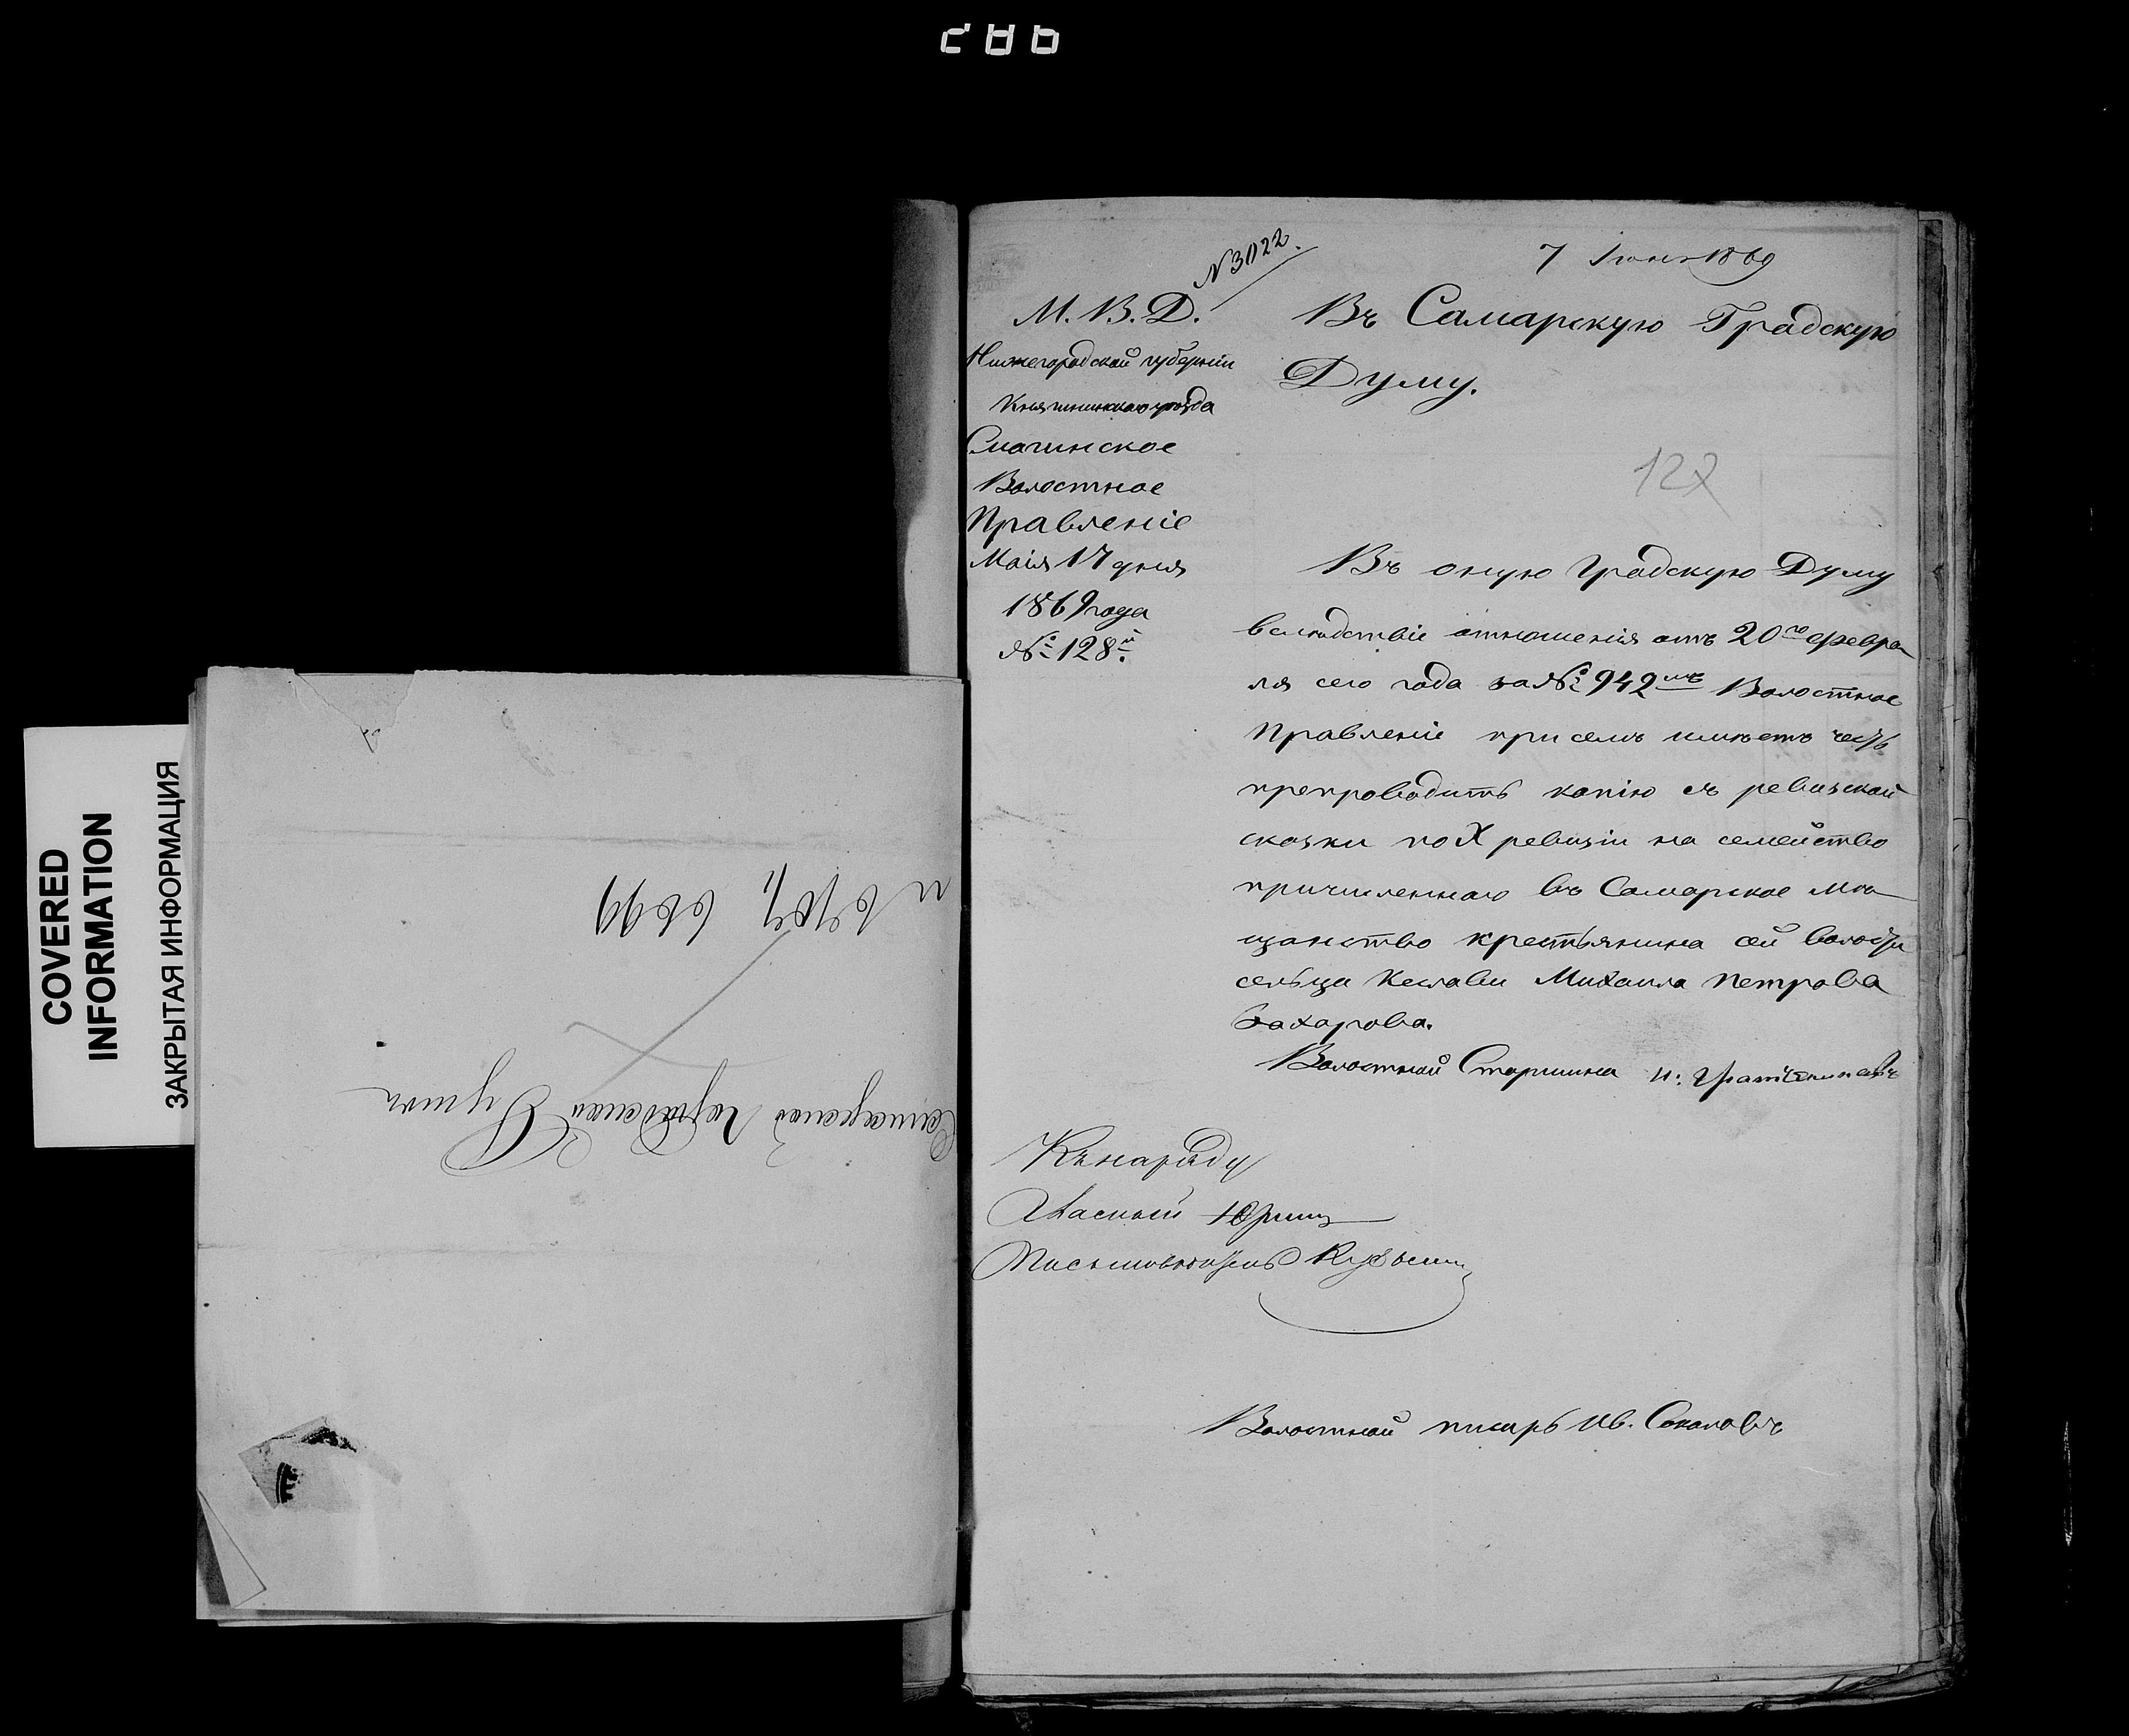 COVERED
INFORMATION
ЗАКРЫТАЯ ИНФОРМАЦИЯ
Самарской городской Думы
N 3022.
7 Іюня 1869
М. В. Д.
Нижегородской губерніи
Княгининскаго уѣзда
Смагинское
Волостное
Правленіе
Маія 17 дня
1869 года
№ 128й.
Въ Самарскую Градскую
Думу.
127
Въ оную Градскую Думу
вслѣдствіе отношенія отъ 20го Февра
ля сего года за № 942мъ Волостное
Правленіе при семъ имѣетъ честь
препроводить копію съ ревизской
сказки по X ревизіи на семейство
причисленнаго въ Самарское Мѣ
щанство крестьянина сей волости
сельца Кеславы Михаила Петрова
Захарова.
Волостной Старшина И:
Къ наряду
Гласный Юрин
Письмоводитель
Волостной писарь Ив. Соколовъ